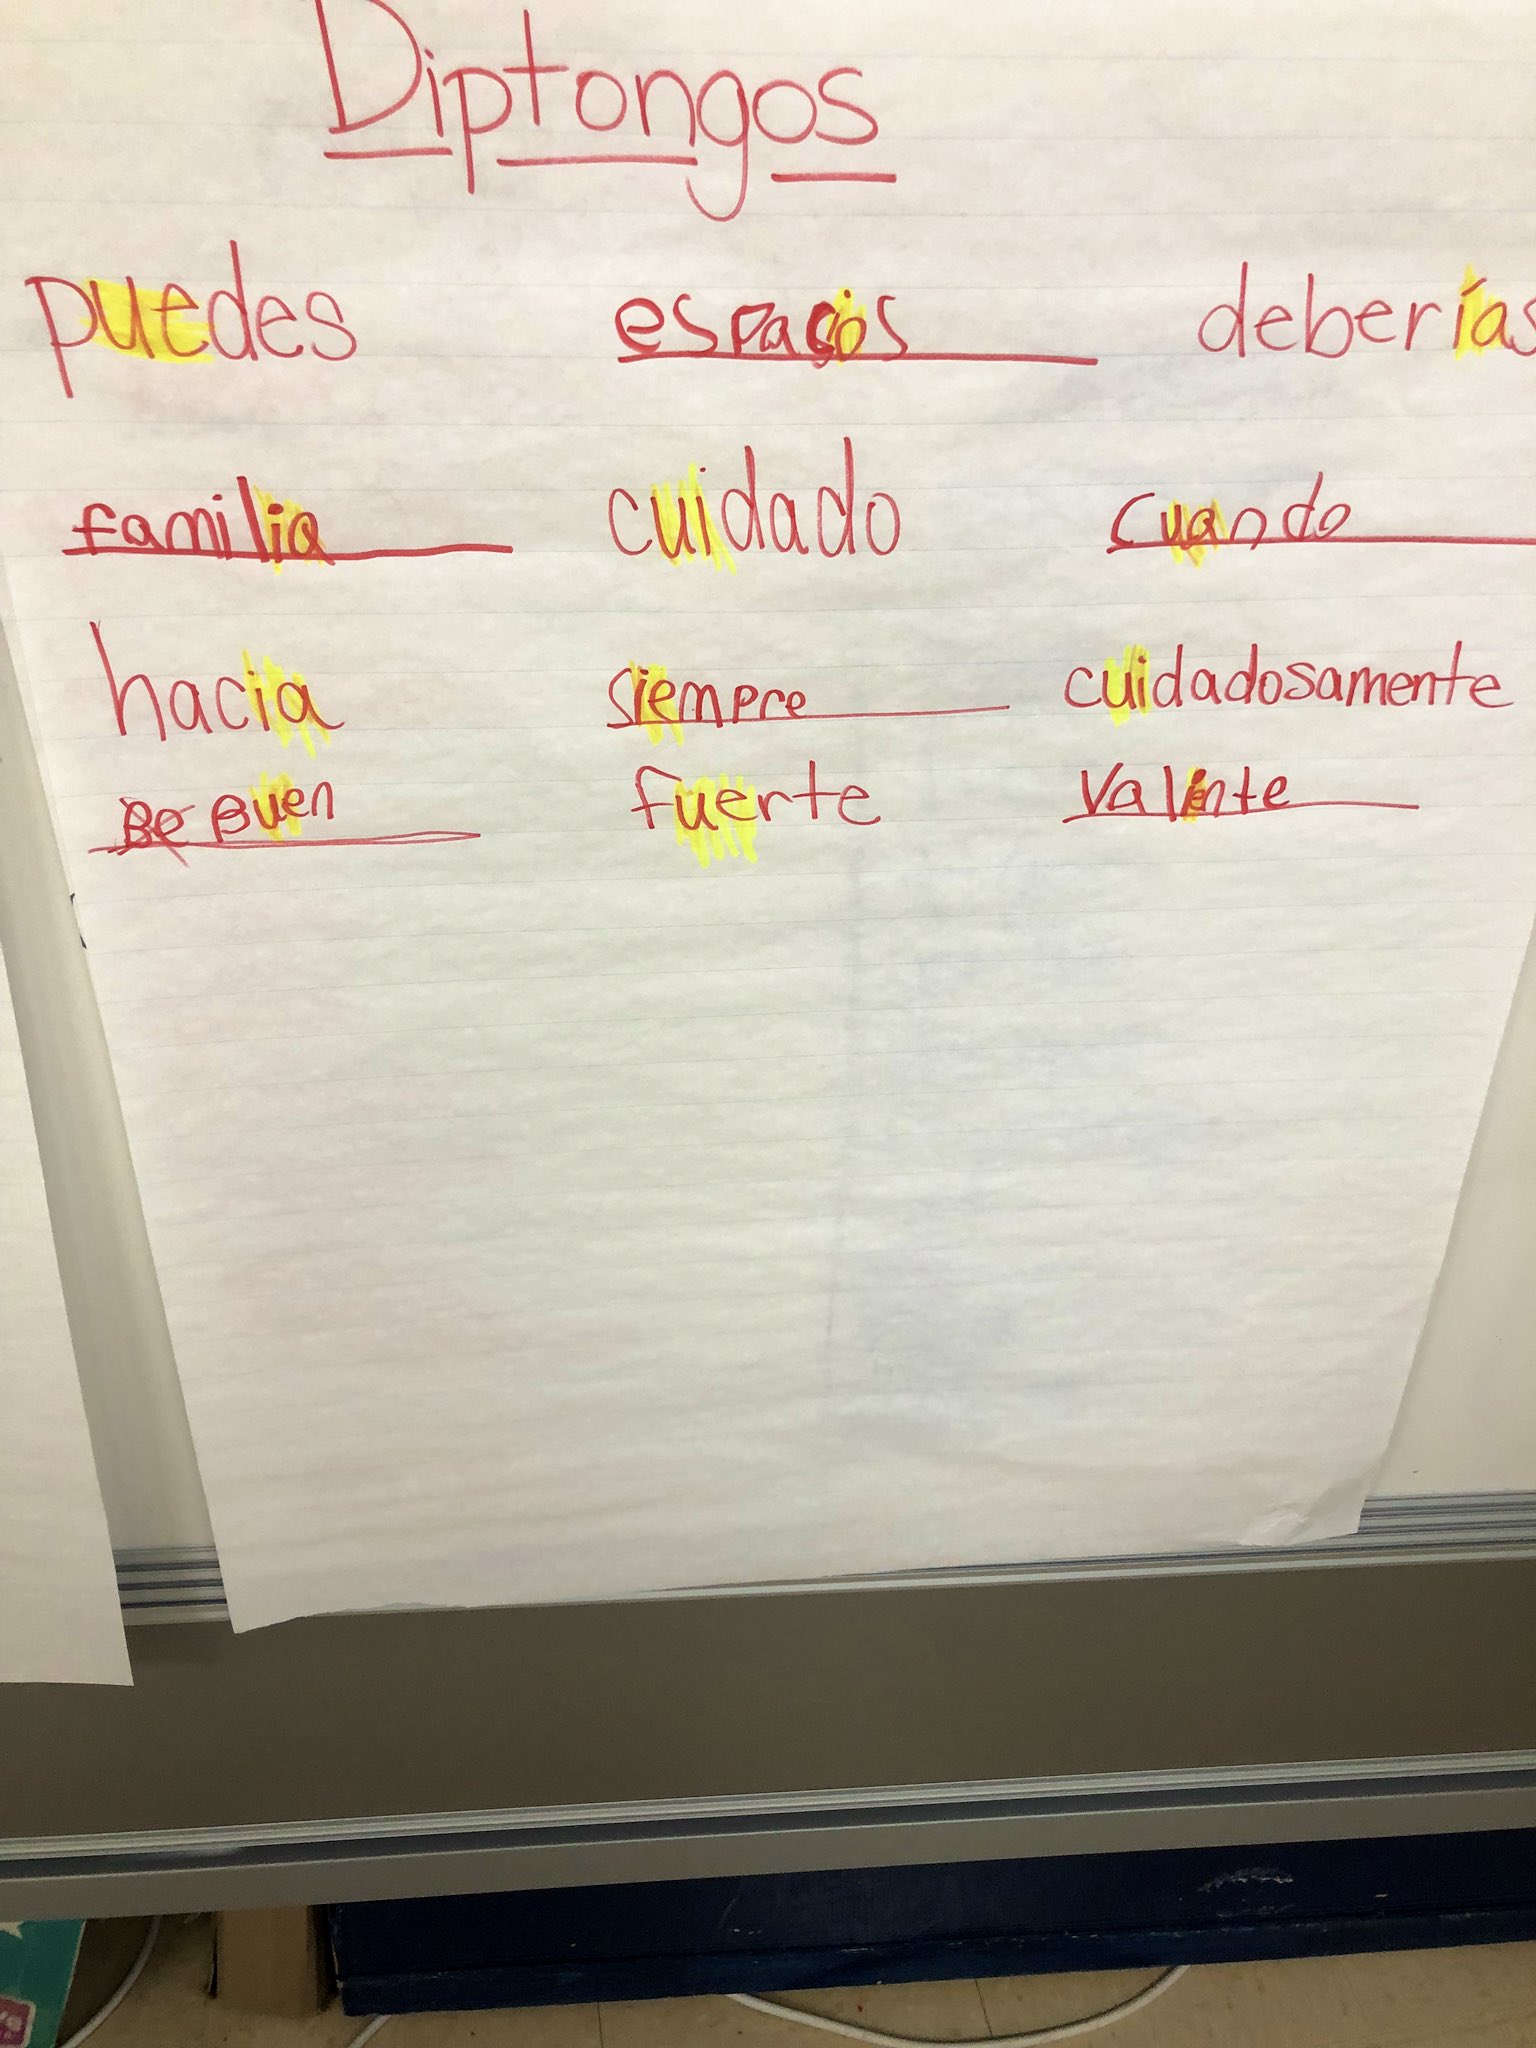 Diptongos
puedes espacios deberías
familia cuidado cuando
hacia siempre cuidadosamente
Be Buen fuerte Valinte